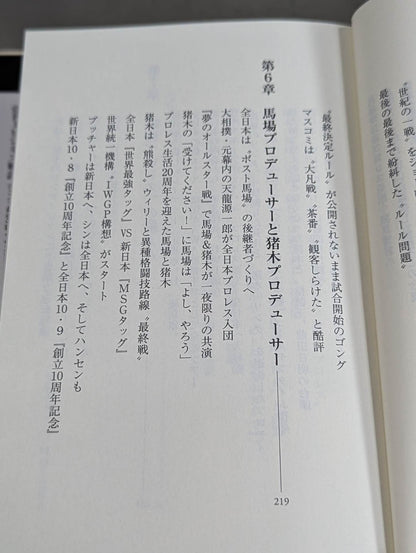 〝世紀の一戦〟を
最後の最後まで紛糾した〝ルール問題〟
〝最終決定ルール〟が公開されないまま試合開始のゴング
マスコミは〝大凡戦〟〝茶番〟〝観客しらけた〟と酷評
第6章 馬場プロデューサーと猪木プロデューサー 219
全日本は〝ポスト馬場〟の後継者づくりへ
大相撲・元幕内の天龍源一郎が全日本プロレス入団
『夢のオールスター戦』で馬場&猪木が一夜限りの共演
猪木の「受けてください!」に馬場は「よし、やろう」
プロレス生活20周年を迎えた馬場と猪木
猪木は〝熊殺し〟ウィリーと異種格闘技路線〝最終戦〟
全日本『世界最強タッグ』VS新日本『MSGタッグ』
世界統一機構〝IWGP構想〟がスタート
ブッチャーは新日本へ、シンは全日本へ、そしてハンセンも
新日本10・8『創立10周年記念』と全日本10・9『創立10周年記念』